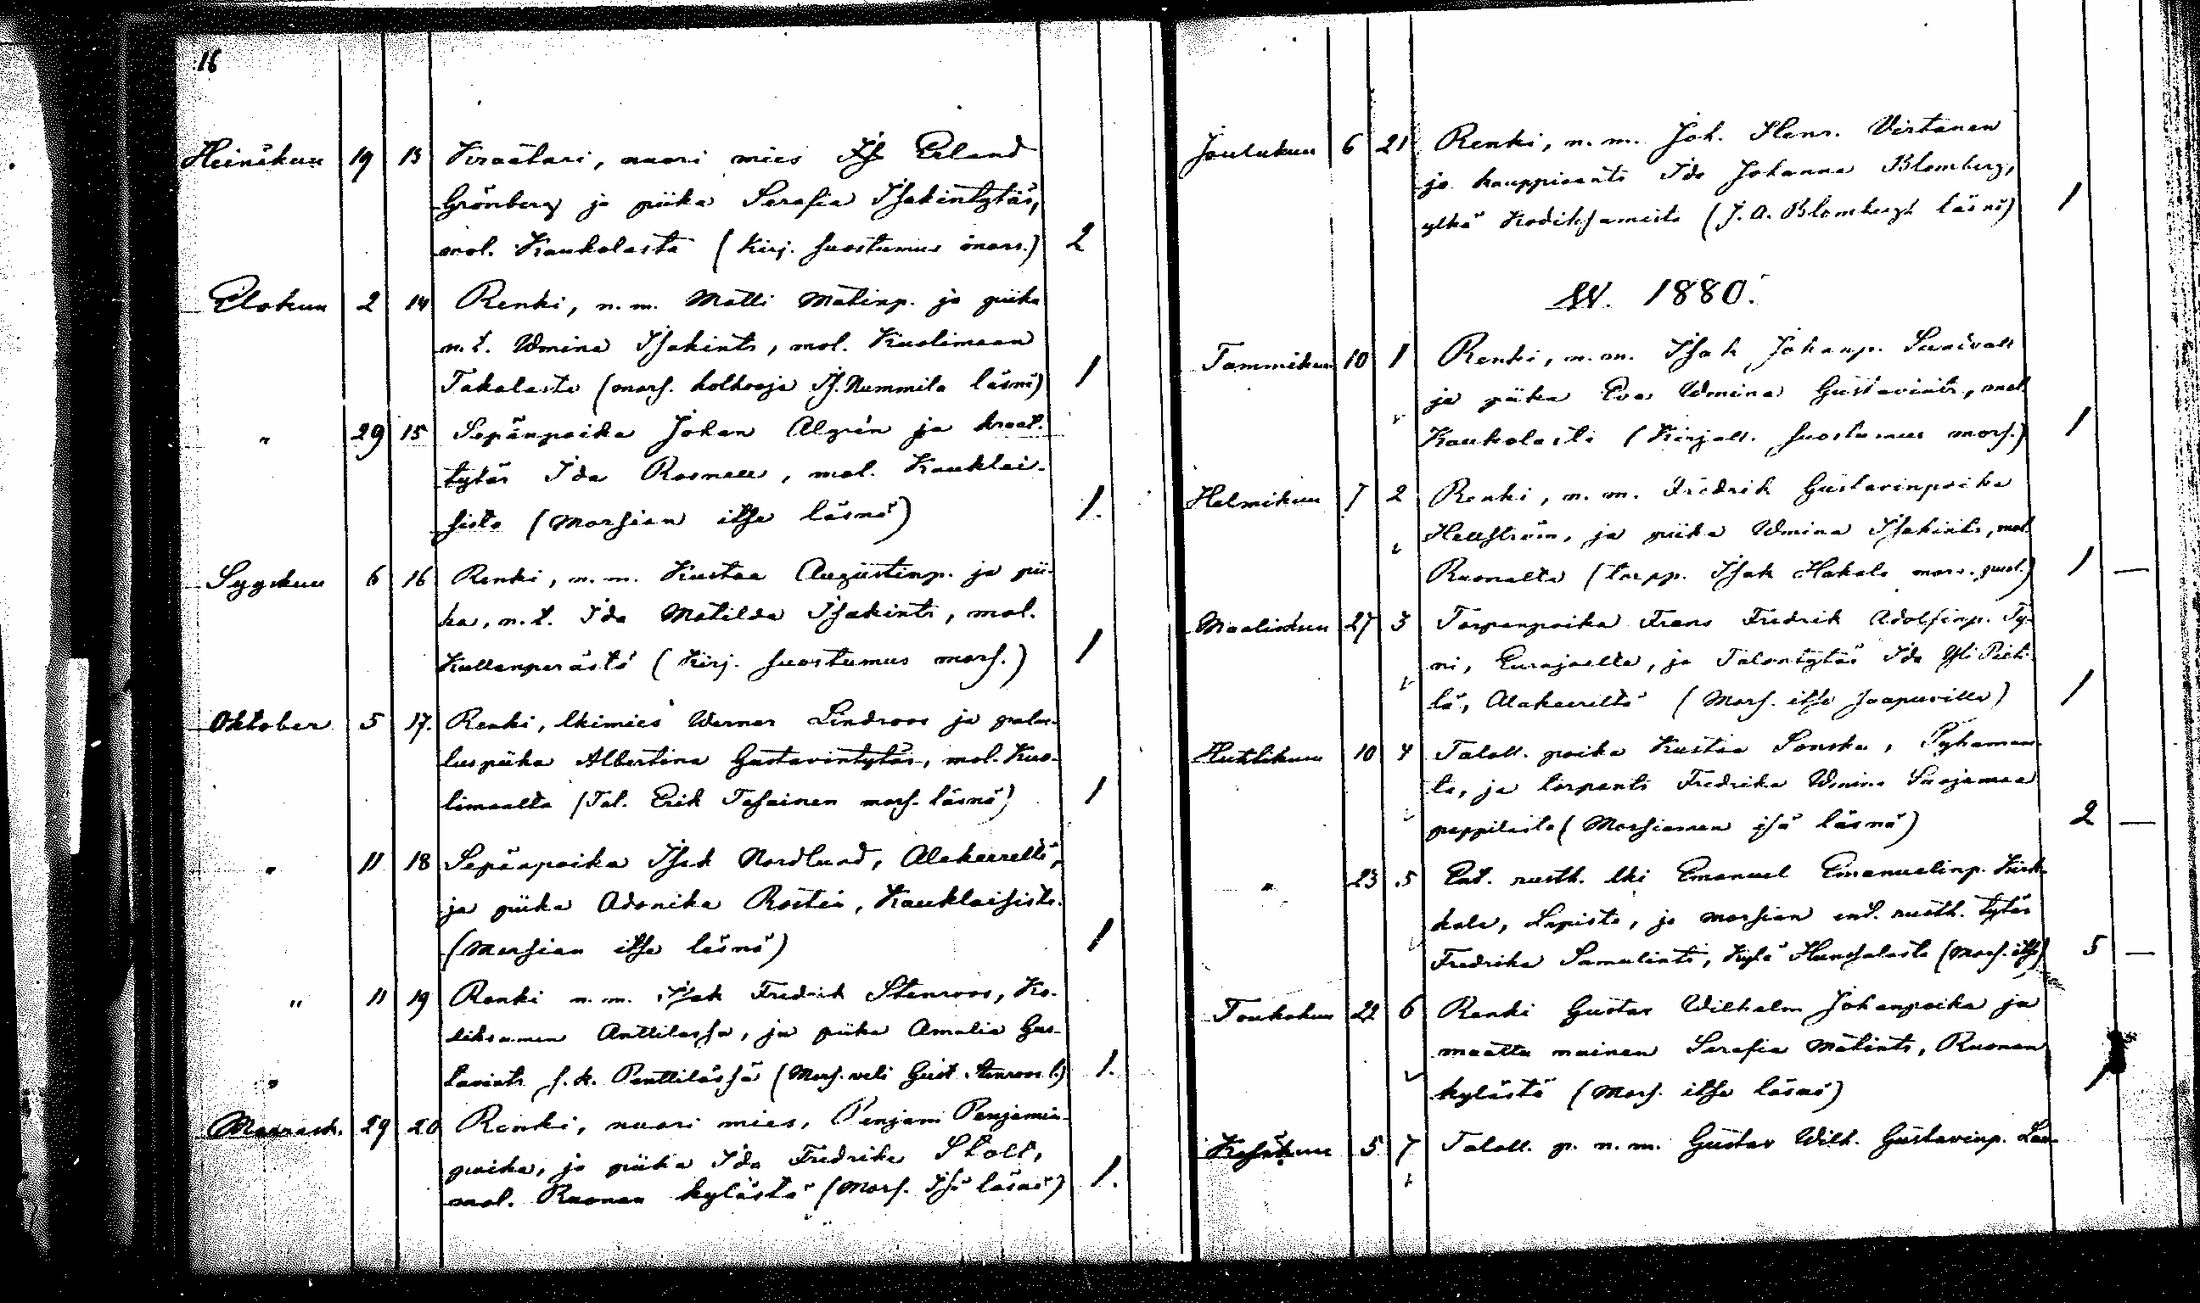 16
Heinäkuu 19 13 Kraatari, nuori mies Is. Erland
Grönberg ja piika Serafia Isakintytär,
mol. Kaukolasta (Kirj. suostumus mors.) 2
Elokuu 2 14 Renki, n. m. Matti Matinp. ja piika
n. t. Wmina Isakints, mol. Kuolimaan
Takalasta (mors. holhooja Is. Nummila läsnä) 1
" 29 15 Sepänpoika Johan Algrén ja kraat.
tytär Ida Rosnell, mol. Kauklai-
sista (Morsian itse läsnä) 1.
Syyskuu 6 16 Renki, n. m. Kustaa Augustinp. ja pii-
ka, n. t. Ida Matilda Isakints, mol.
Kullanperästä (Kirj. suostumus mors.) 1
Oktober 5 17. Renki, lkimies Werner Lindroos ja palve-
luspiika Albertina Gustavintytär, mol. Kuo-
limaalta (Tal. Erik Tasainen mors. läsnä) 1
" 11 18 Sepänpoika Isak Nordlund, Alakeereltä,
ja piika Adonika Rostén, Kauklaisista.
(Morsian itse läsnä) 1
" 11 19 Renki n. m. Isak Fredrik Stenroos, Ko-
diksamen Anttilassa, ja piika Amalia Gus-
tavints s. k. Penttilässä (Mors. veli Gust. Stenroos l.) 1.
"
Marrask. 29 20 Renki, nuori mies, Penjami Penjamin-
poika, ja piika Ida Fredrika Stolt,
mol. Ruonan kylästä (Mors. Isä läsnä) 1.
Joulukuu 6 21 Renki, n. m. Joh. Henr. Virtanen
ja kauppiaants Ida Johanna Blomberg,
ylkä Kodiksamista (J. A. Blombergh läsnä) 1
W. 1880.
Tammikuu 10 1 Renki, n. m. Isak Johanp.
ja piika Eva Wmina Gustavints, mol.
Kaukolasta (Kirjall. suostumus mors.) 1
Helmikuu 7 2 Renki, n. m. Fredrik Gustavinpoika
Hellström, ja piika Wmina Isakints, mol.
Ruonalta (torpp. Isak Hakala mors. puol.) 1 —
Maaliskuu 27 3 Torpanpoika Frans Fredrik Adolfinp. Ty-
ni, Eurajoelta, ja Talontytär Ida Yli Peeti-
lä, Alakeereltä (Mors. itse saapuvilla) 1
Huhtikuu 10 4 Taloll. poika Kustaa Sonska, Pyhämaas-
ta, ja torpants Fredrika Wmina Suojamaa
pappilasta (Morsiamen isä läsnä) 2 —
" 23 5 Ent. rusth. lki Emanuel Emanuelinp. Kirk-
kala, Lapista, ja morsian ent. rusth. tytär
Fredrika Samulints, Kylä Hunsalasta (Mors. itse) 5 —
Toukokuu 22 6 Renki Gustav Wilhelm Johanpoika ja
maattu nainen Serafia Matints, Ruonan
kylästä (Mors. itse läsnä) 1
Kesäkuu 5 7 Taloll. p. n. m. Gustav Wilh. Gustavinp.